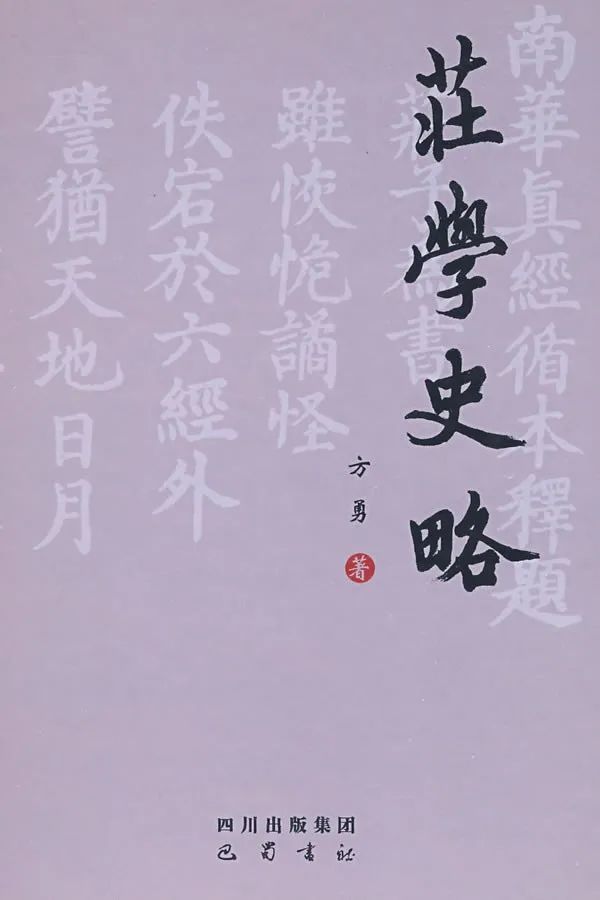 南華眞經循本釋題
莊子爲書
雖恢恑譎怪
佚宕於六經外
譬猶天地日月
莊學史略
方勇
著
四川出版集团
巴蜀書社